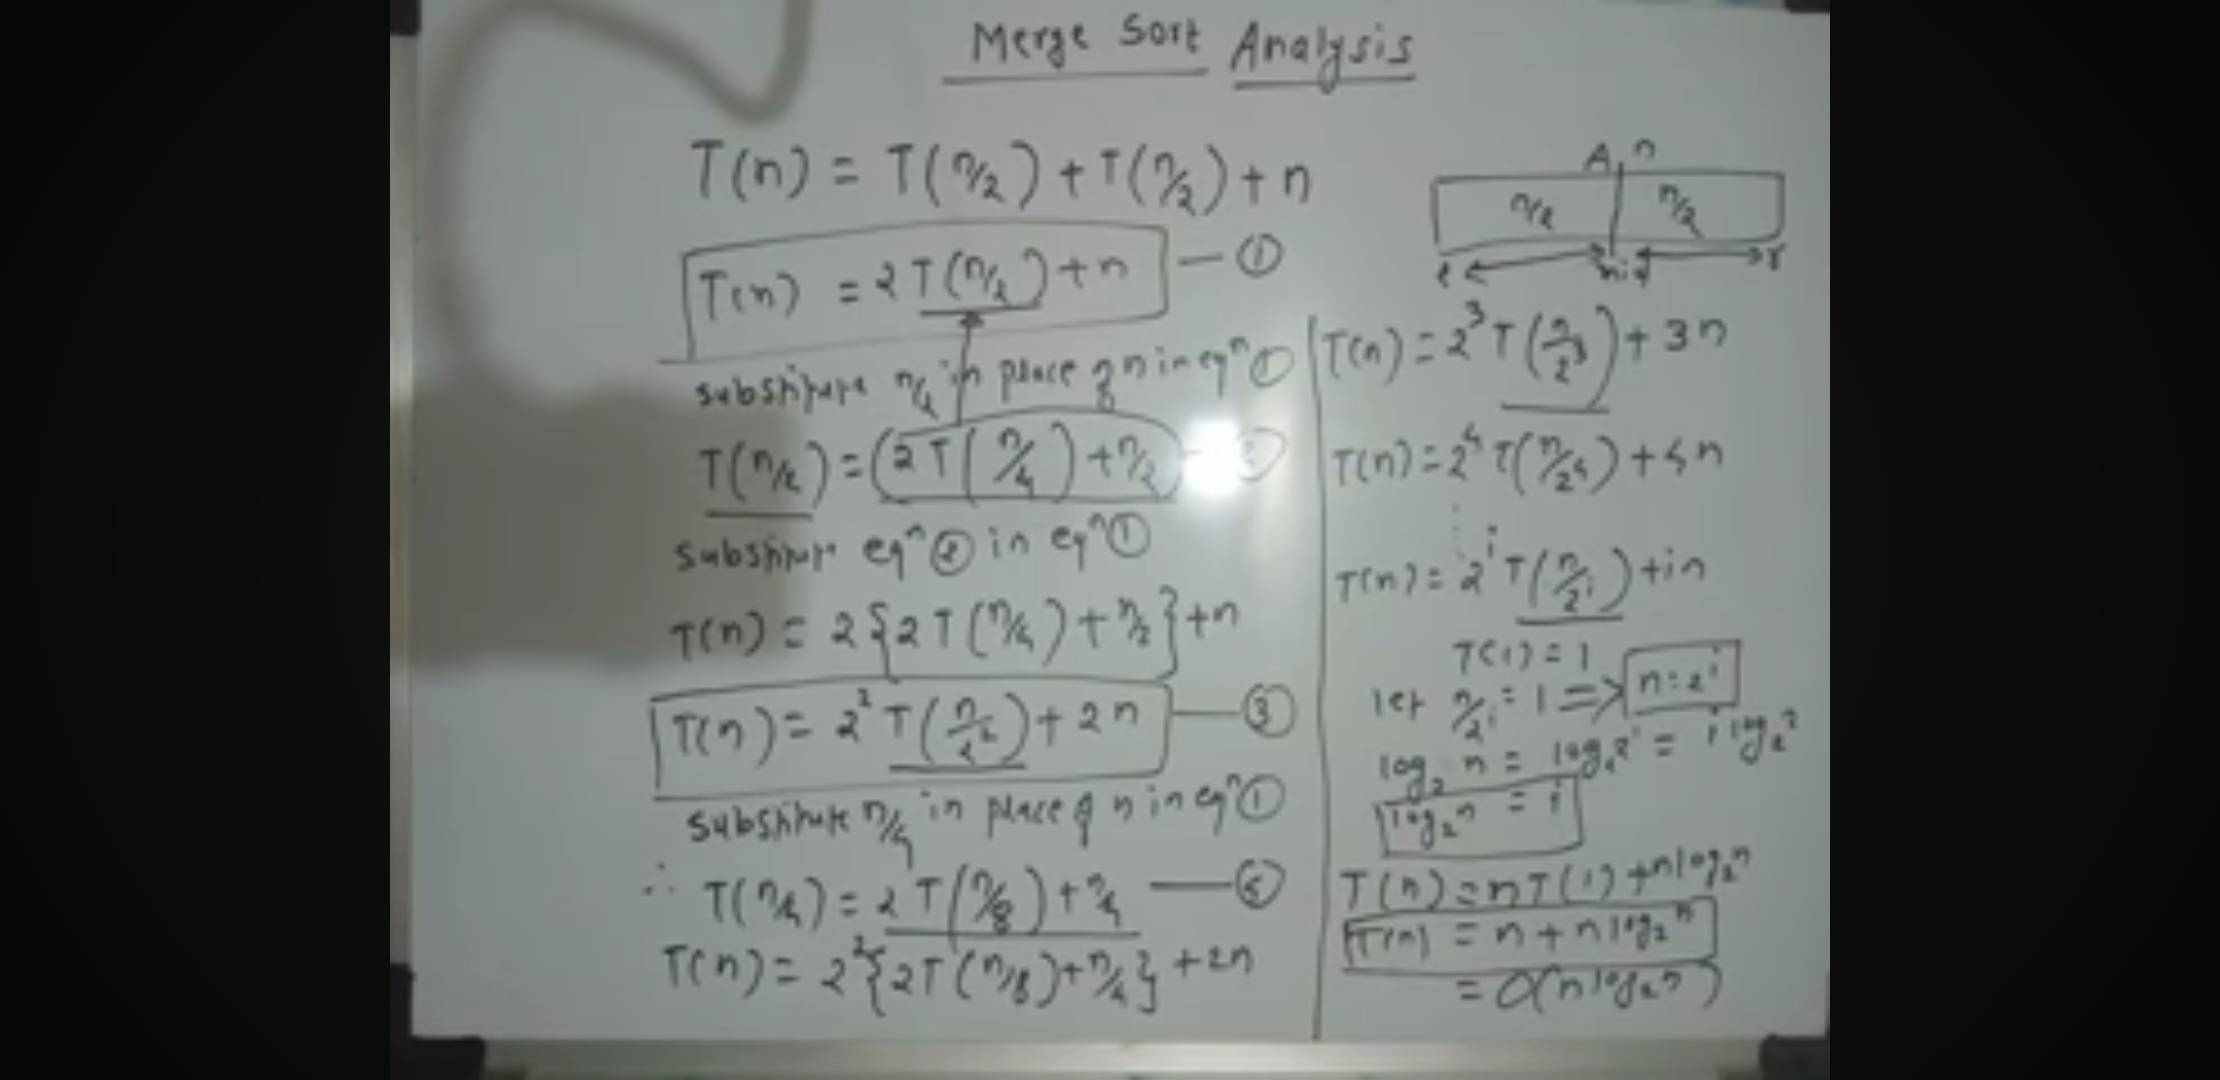 Merge Sort Analysis
T(n) = T(n/2) + T(n/2) + n
T(n) = 2T(n/2) + n — ①
substitute n/2 in place of n in eqⁿ ①
T(n/2) = (2T(n/4) + n/2)
substitute eqⁿ ② in eqⁿ ①
T(n) = 2{2T(n/4) + n/2} + n
T(n) = 2² T(n/2²) + 2n — ③
substitute n/4 in place of n in eqⁿ ①
∴ T(n/4) = 2T(n/8) + n/4 —
T(n) = 2²{2T(n/8) + n/4} + 2n
A n
n/2 n/2
l mid r
T(n) = 2³ T(n/2³) + 3n
T(n) = 2⁴ T(n/2⁴) + 4n
⋮
T(n) = 2ⁱ T(n/2ⁱ) + in
T(1) = 1
let n/2ⁱ = 1 => n = 2ⁱ
log₂ n = log₂ 2ⁱ = i log₂ 2
log₂ n = i
T(n) = nT(1) + n log₂ n
T(n) = n + n log₂ n
= O(n log₂ n)